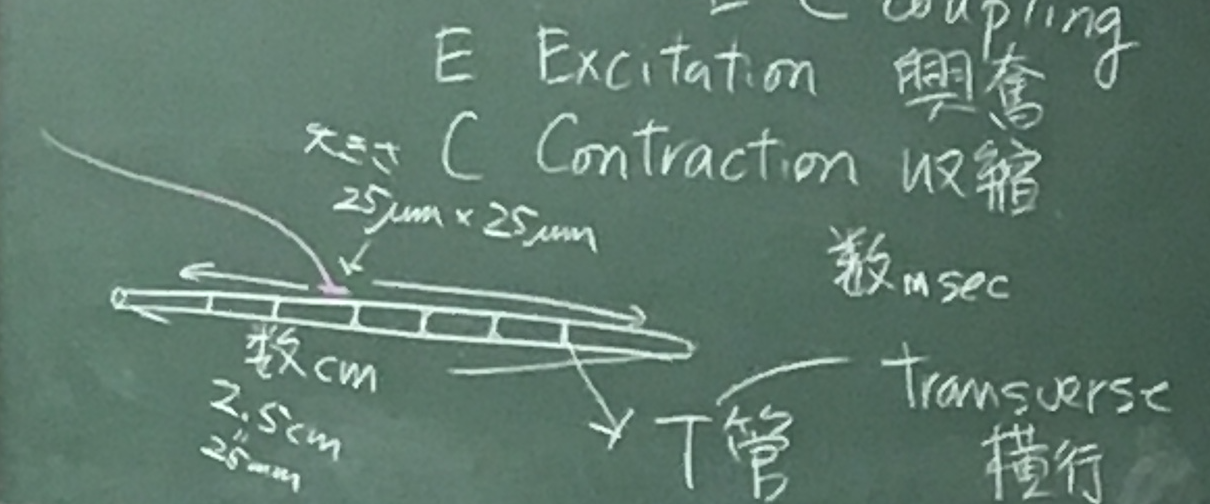 E C Coupling
E Excitation 興奮
C Contraction 収縮
大きさ
25μm × 25μm
数msec
数cm
2.5cm
"
25mm
T管
transverse
横行